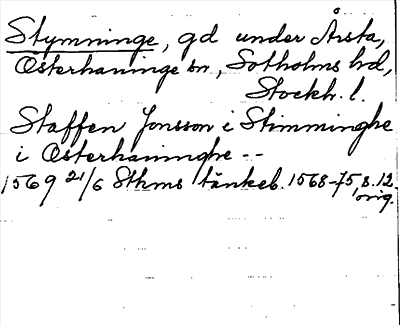 Stymninge, gd under Årsta,
Österhaninge sn, Sotholms hd,
Stockh. l.
Staffen Jonsson i Stimminghe
i Österhaninghe --
1569 21/6 Sthms tänkeb. 1568-75, s. 12.
orig.